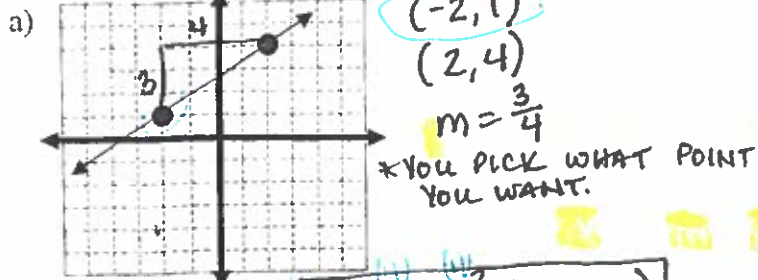 a)
4
3
(-2, 1)
(2, 4)
m = 3/4
*YOU PICK WHAT POINT
YOU WANT.